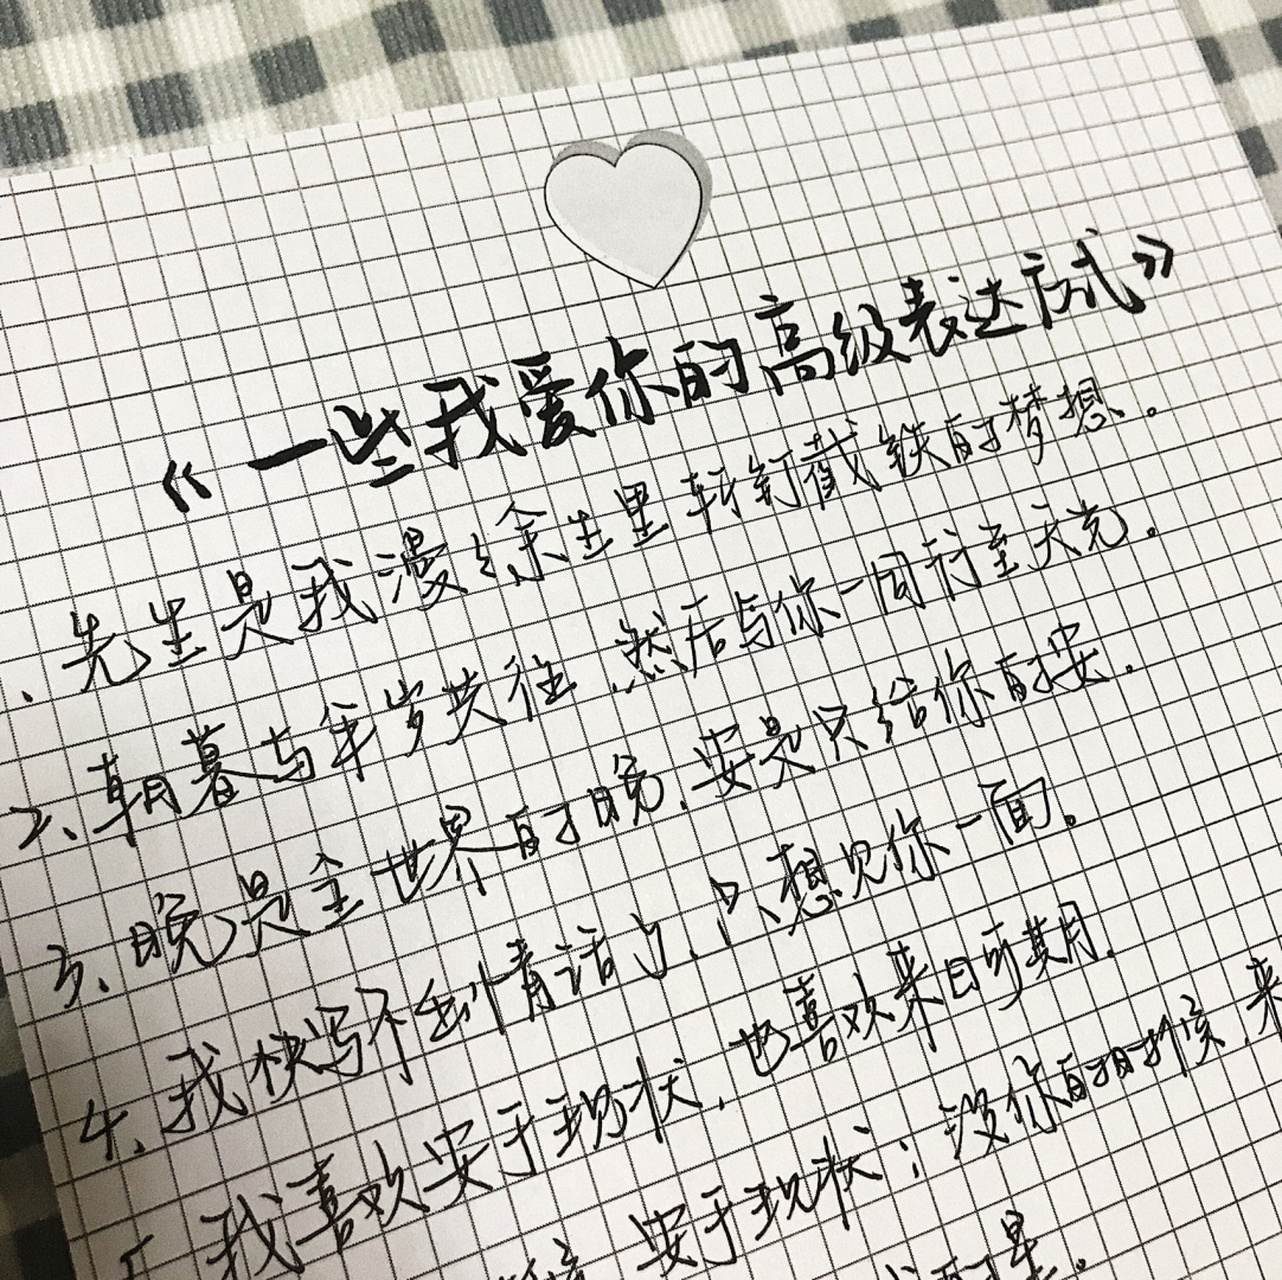 《一些我爱你的高级表达方式》
、先生是我漫々余生里斩钉截铁的梦想。
2、朝暮与年岁共往，然后与你一同行至天光。
3、晚是全世界的晚，安是只给你的安.
4、我快写不出情话了，只想见你一面。
5 我喜欢安于现状，也喜欢来日可期.
安于现状；没你的时候，来
的星。